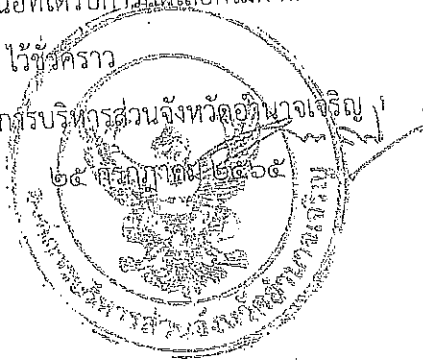 ไว้ชั่วคราว
การบริหารส่วนจังหวัดอำนาจเจริญ
๒๕ กรกฎาคม ๒๕๖๕
องค์การบริหารส่วนจังหวัดอำนาจเจริญ